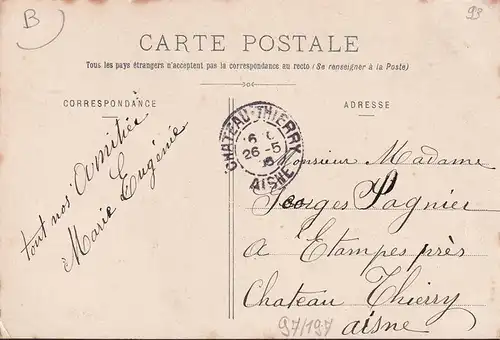 B
93
CARTE POSTALE
Tous les pays étrangers n'acceptent pas la correspondance au recto (Se renseigner à la Poste)
CORRESPONDANCE
ADRESSE
tout nos Amitiés
Marie Eugénie
CHATEAU-THIERRY
26 -5
AISNE
Monsieur Madame
Georges Pagnier
A Etampes près
Chateau Thierry
aisne
97/197